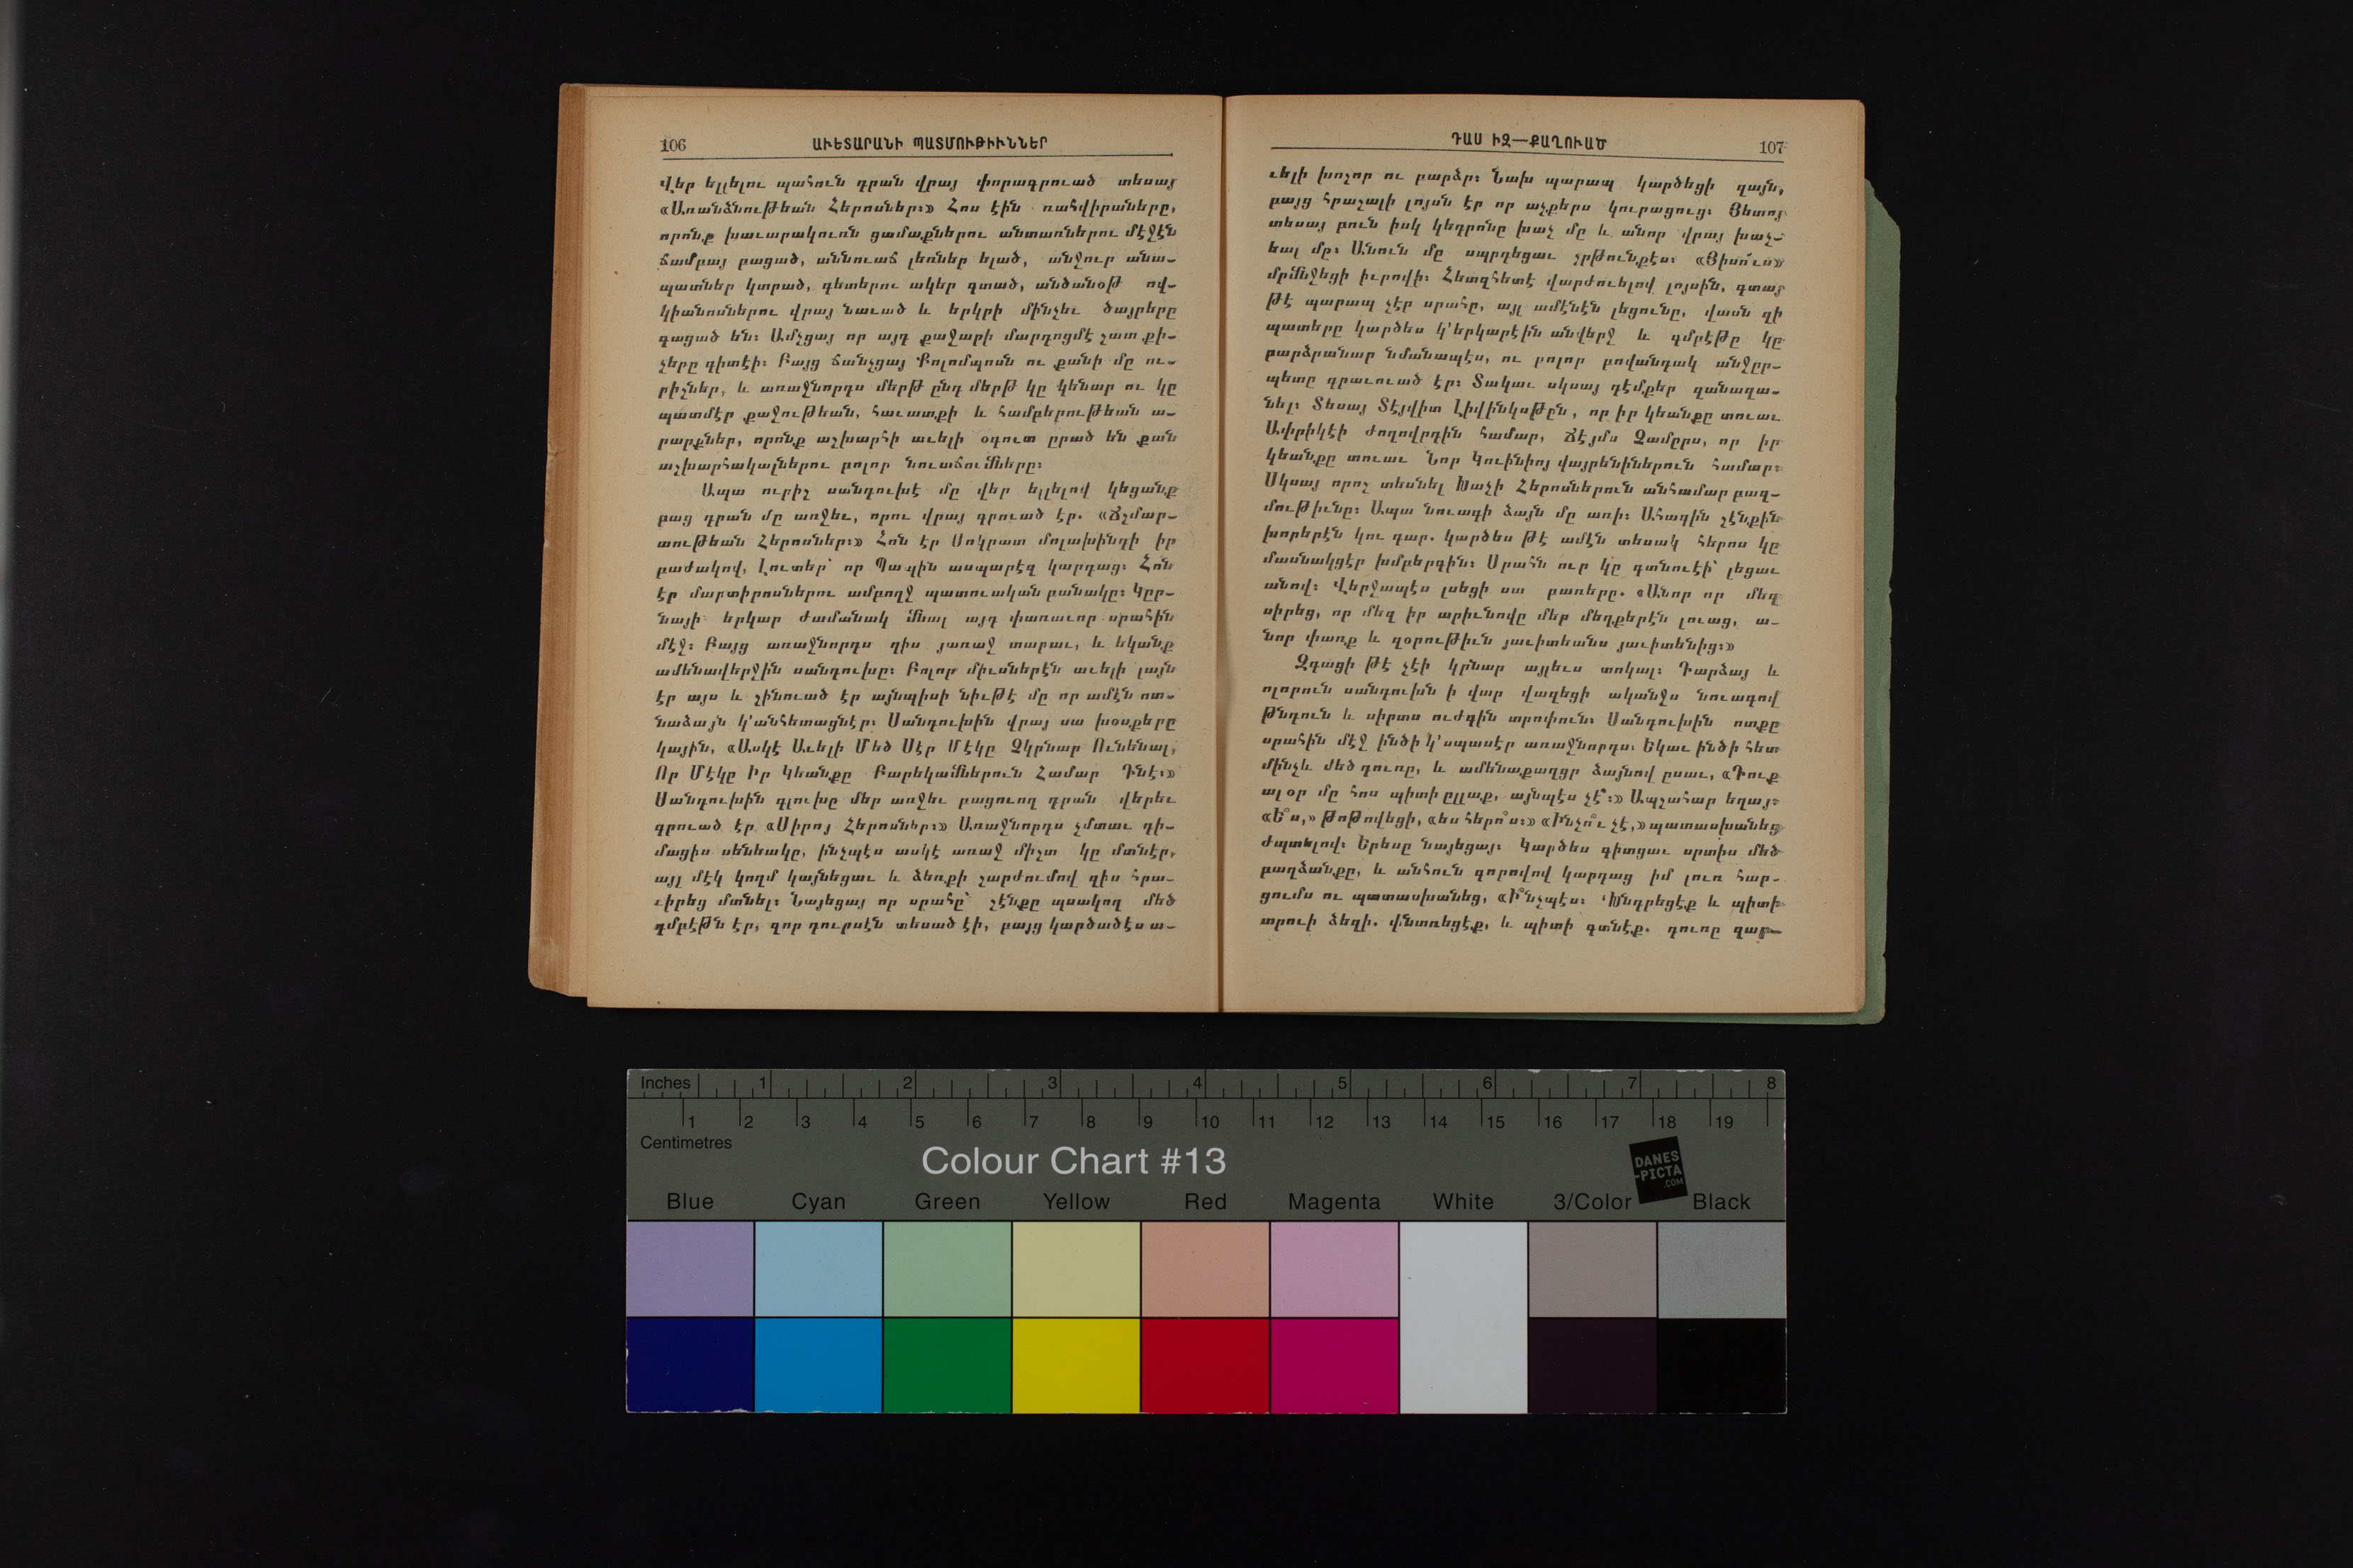 106
ԱՒԵՏԱՐԱՆԻ ՊԱՏՄՈՒԹԻՒՆՆԵՐ
վեր ելլելու պահուն դրան վրայ փորագրուած տեսայ
«Առանձնութեան Հերոսներ։» Հոս էին ռահվիրաները,
որոնք խաւարակուռն ցամաքներու անտառներու մէջէն
ճամբայ բացած, աննուաճ լեռներ ելած, անջուր անա-
պատներ կտրած, գետերու ակեր գտած, անծանօթ ով-
կիանոսներու վրայ նաւած և երկրի մինչեւ ծայրերը
գացած են։ Ամչցայ որ այդ քաջարի մարդոցմէ շատ քի-
չերը գիտէի։ Բայց ճանչցայ Քոլոմպոսն ու քանի մը ու-
րիշներ, և առաջնորդս մերթ ընդ մերթ կը կենար ու կը
պատմէր քաջութեան, հաւատքի և համբերութեան ա-
րարքներ, որոնք աշխարհի աւելի օգուտ ըրած են քան
աշխարհակալներու բոլոր նուաճումները։
Ապա ուրիշ սանդուխէ մը վեր ելլելով կեցանք
բաց դրան մը առջեւ, որու վրայ գրուած էր. «Ճշմար-
տութեան Հերոսներ։» Հոն էր Սոկրատ մոլախինդի իր
բաժակով, Լուտեր՝ որ Պապին ասպարէզ կարդաց։ Հոն
էր մարտիրոսներու ամբողջ պատուական բանակը։ Կըր-
նայի երկար ժամանակ մնալ այդ փառաւոր սրահին
մէջ։ Բայց առաջնորդս զիս յառաջ տարաւ, և եկանք
ամենավերջին սանդուխը։ Բոլոր միւսներէն աւելի լայն
էր այս և շինուած էր այնպիսի նիւթէ մը որ ամէն ոտ-
նաձայն կ՚անհետացնէր։ Սանդուխին վրայ սա խօսքերը
կային, «Ասկէ Աւելի Մեծ Սէր Մէկը Չկրնար Ունենալ,
Որ Մէկը Իր Կեանքը Բարեկամներուն Համար Դնէ։»
Սանդուխին գլուխը մեր առջեւ բացուող դրան վերեւ
գրուած էր «Սիրոյ Հերոսներ։» Առաջնորդս չմտաւ դի-
մացիս սենեակը, ինչպէս ասկէ առաջ միշտ կը մտնէր,
այլ մէկ կողմ կայնեցաւ և ձեռքի շարժումով զիս հրա-
ւիրեց մտնել։ Նայեցայ որ սրահը՝ շէնքը պսակող մեծ
գմբէթն էր, զոր դուրսէն տեսած էի, բայց կարծածէս ա-
ԴԱՍ ԻԶ—ՔԱՂՈՒԱԾ
107
ւելի խոշոր ու բարձր։ Նախ պարապ կարծեցի զայն,
բայց հրաշալի լոյսն էր որ աչքերս կուրացուց։ Յետոյ
տեսայ բուն իսկ կեդրոնը խաչ մը և անոր վրայ խաչ-
եալ մը։ Անուն մը սպրդեցաւ շրթունքէս։ «Յիսո՜ւս»
մրմնջեցի իւրովի։ Հետզհետէ վարժուելով լոյսին, գտայ
թէ պարապ չէր սրահը, այլ ամէնէն լեցունը, վասն զի
պատերը կարծես կ՚երկարէին անվերջ և գմբէթը կը
բարձրանար նմանապէս, ու բոլոր բովանդակ անջըր-
պետը գրաւուած էր։ Տակաւ սկսայ դէմքեր զանազա-
նել։ Տեսայ Տէյվիտ Լիվինկսթըն, որ իր կեանքը տուաւ
Ափրիկէի ժողովրդին համար, Ճէյմս Չամըրս, որ իր
կեանքը տուաւ Նոր Կուինիոյ վայրենիներուն համար։
Սկսայ որոշ տեսնել Խաչի Հերոսներուն անհամար բազ-
մութիւնը։ Ապա նուագի ձայն մը առի։ Ահագին շէնքին
խորերէն կու գար. կարծես թէ ամէն տեսակ հերոս կը
մասնակցէր խմբերգին։ Սրահն ուր կը գտնուէի՝ լեցաւ
անով։ Վերջապէս լսեցի սա բառերը. «Անոր որ մեզ
սիրեց, որ մեզ իր արիւնովը մեր մեղքերէն լուաց, ա-
նոր փառք և զօրութիւն յաւիտեանս յաւիտենից։»
Զգացի թէ չէի կրնար այլեւս տոկալ։ Դարձայ և
ոլորուն սանդուխն ի վար վազեցի ականջս նուագով
թնդուն և սիրտս ուժգին տրոփուն։ Սանդուխին ոտքը
սրահին մէջ ինծի կ՚սպասէր առաջնորդս։ Եկաւ ինծի հետ
մինչև մեծ դուռը, և ամենաքաղցր ձայնով ըսաւ, «Դուք
ալ օր մը հոս պիտի ըլլաք, այնպէս չէ՞։» Ապշահար եղայ։
«Ե՞ս,» թոթովեցի, «ես հերո՞ս։» «Ինչո՞ւ չէ,» պատասխանեց
ժպտելով։ Երեսը նայեցայ։ Կարծես գիտցաւ սրտիս մեծ
բաղձանքը, և անհուն գորովով կարդաց իմ լուռ հար-
ցումս ու պատասխանեց, «Ի՞նչպէս։ Խնդրեցէք և պիտի
տրուի ձեզի. փնտռեցէք, և պիտի գտնէք. դուռը զար-
Inches 1 2 3 4 5 6 7 8
1 2 3 4 5 6 7 8 9 10 11 12 13 14 15 16 17 18 19
Centimetres
Colour Chart #13
DANES
-PICTA
.COM
Blue Cyan Green Yellow Red Magenta White 3/Color Black